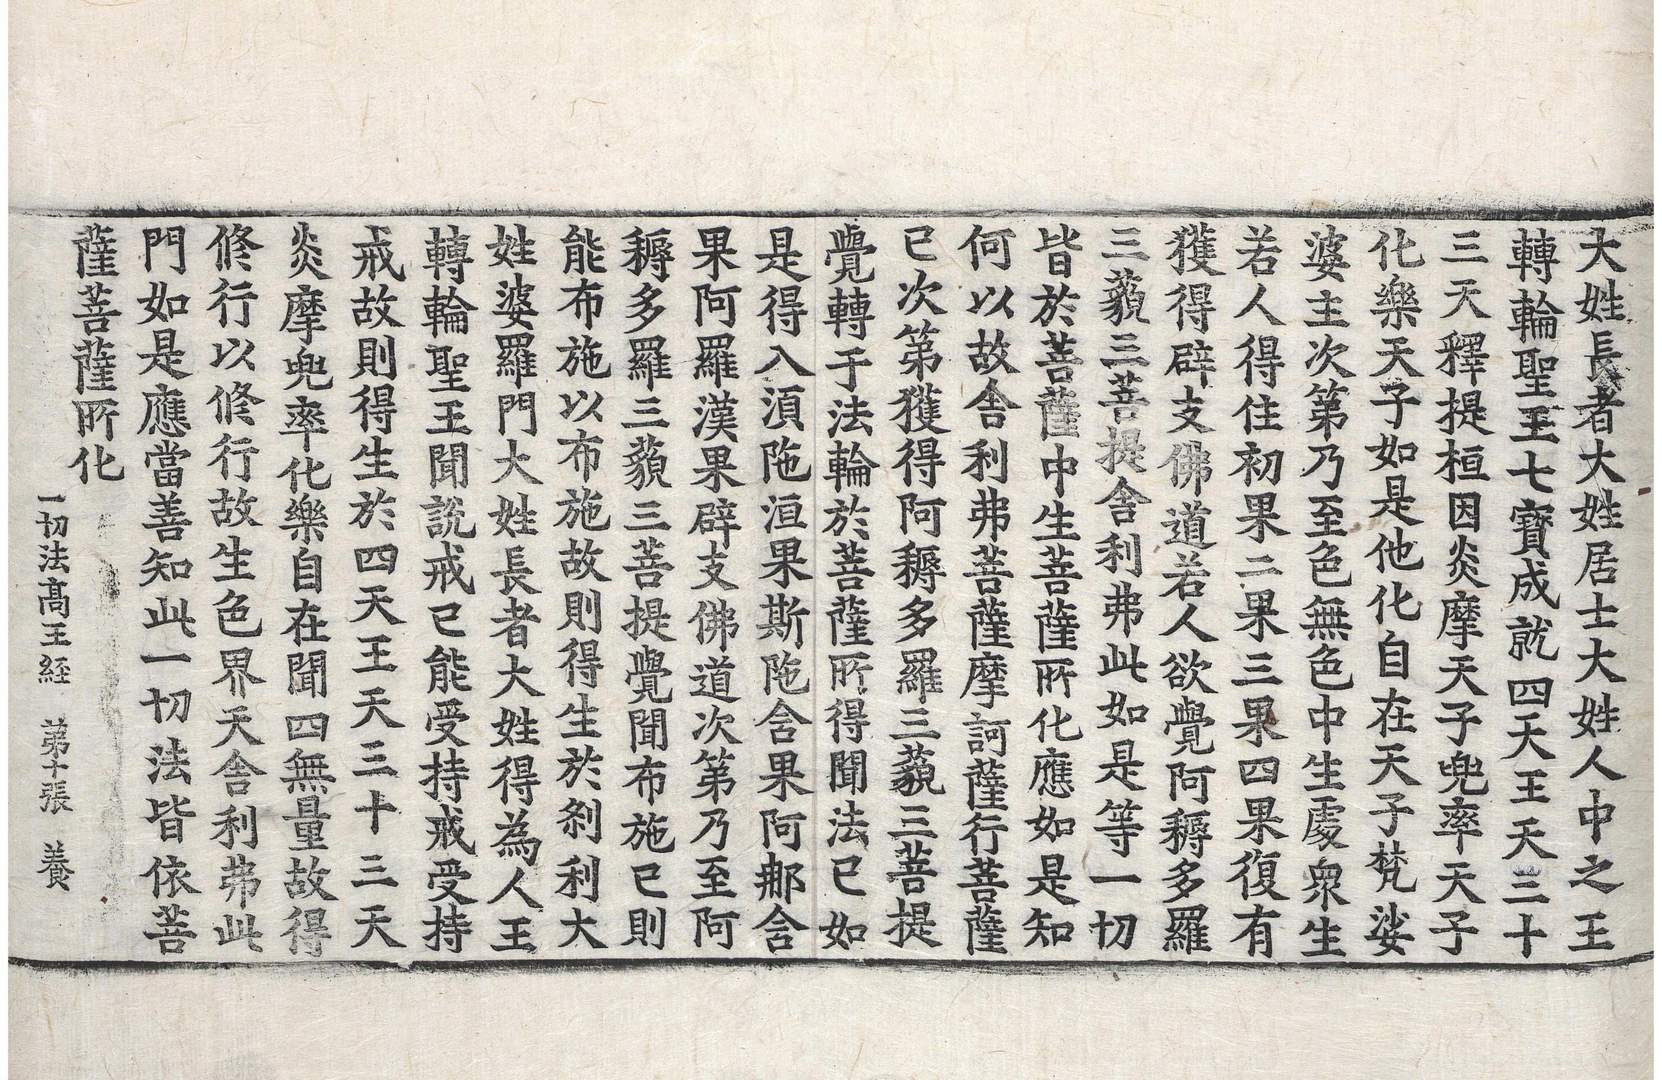 大姓長者大姓居士大姓人中之王
轉輪聖王七寶成就四天王天三十
三天釋提桓因炎摩天子兜率天子
化樂天子如是他化自在天子梵娑
婆主次第乃至色無色中生處衆生
若人得住初果二果三果四果復有
獲得辟支佛道若人欲覺阿耨多羅
三藐三菩提舍利弗此如是等一切
皆於菩薩中生菩薩所化應如是知
何以故舍利弗菩薩摩訶薩行菩薩
已次第獲得阿耨多羅三藐三菩提
覺轉于法輪於菩薩所得聞法已如
是得入湏陁洹果斯陁含果阿那含
果阿羅漢果辟支佛道次第乃至阿
耨多羅三藐三菩提覺聞布施已則
能布施以布施故則得生於剎利大
姓婆羅門大姓長者大姓得為人王
轉輪聖王聞說戒已能受持戒受持
戒故則得生於四天王天三十三天
炎摩兜率化樂自在聞四無量故得
修行以修行故生色界天舍利弗此
門如是應當善知此一切法皆依菩
薩菩薩所化
一切法高王經 第十張 養